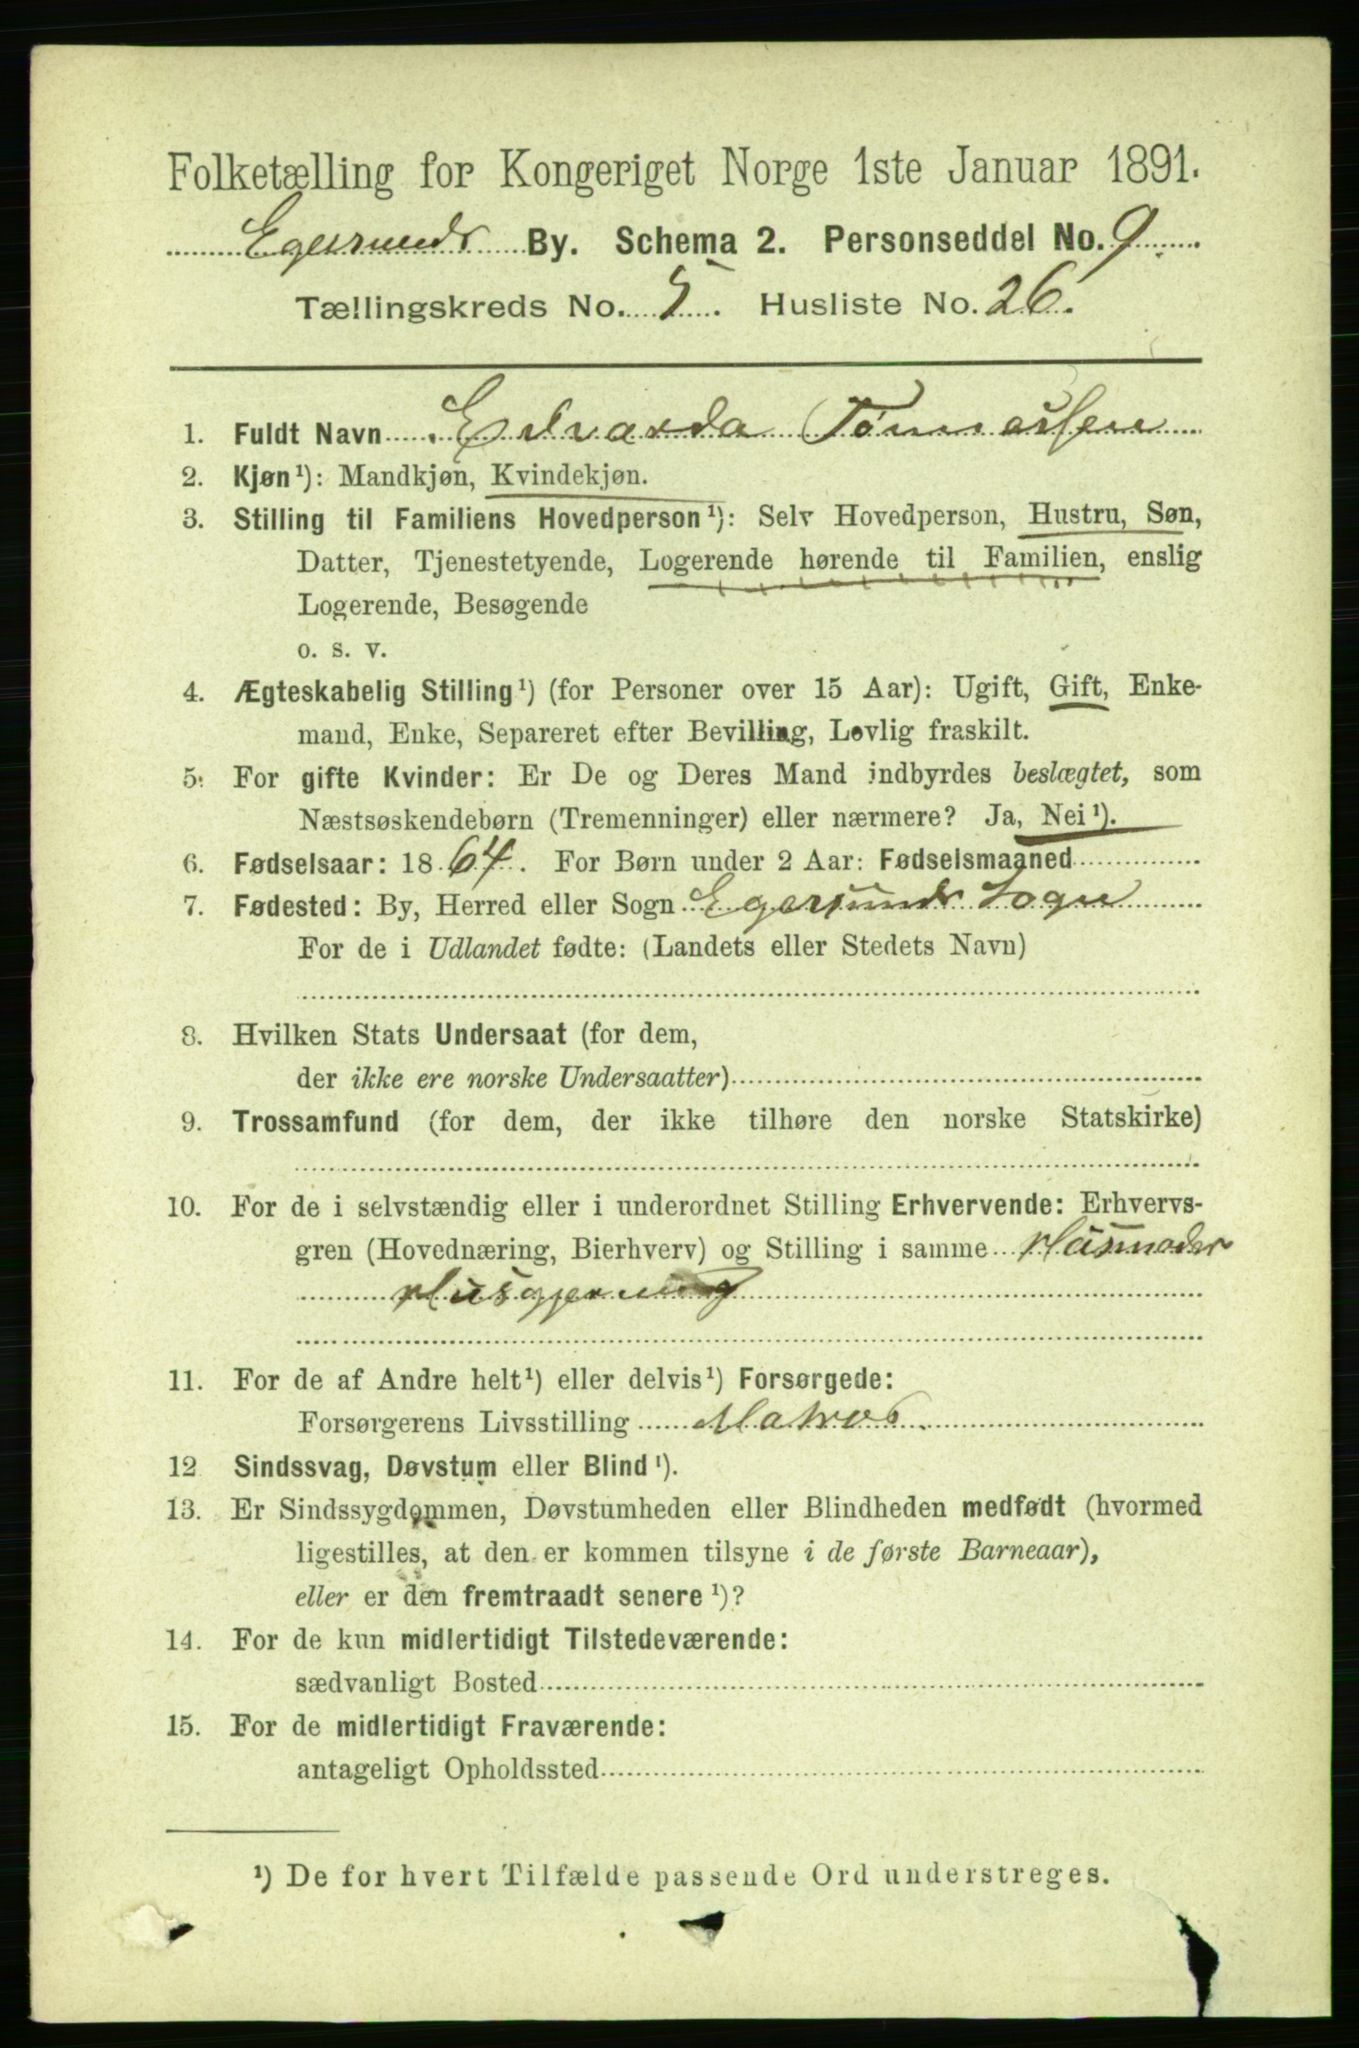 Folketælling for Kongeriget Norge 1ste Januar 1891.
Egersunds By. Schema 2. Personseddel No. 9.
Tællingskreds No. 5. Husliste No. 26.
1. Fuldt Navn Edvarda Tønnessen
2. Kjøn¹): Mandkjøn, Kvindekjøn.
3. Stilling til Familiens Hovedperson¹): Selv Hovedperson, Hustru, Søn,
Datter, Tjenestetyende, Logerende hørende til Familien, enslig
Logerende, Besøgende
o. s. v.
4. Ægteskabelig Stilling¹) (for Personer over 15 Aar): Ugift, Gift, Enke-
mand, Enke, Separeret efter Bevilling, Lovlig fraskilt.
5. For gifte Kvinder: Er De og Deres Mand indbyrdes beslægtet, som
Næstsøskendebørn (Tremenninger) eller nærmere? Ja, Nei¹).
6. Fødselsaar: 1864. For Børn under 2 Aar: Fødselsmaaned
7. Fødested: By, Herred eller Sogn Egersunds Sogn
For de i Udlandet fødte: (Landets eller Stedets Navn)
8. Hvilken Stats Undersaat (for dem,
der ikke ere norske Undersaatter)
9. Trossamfund (for dem, der ikke tilhøre den norske Statskirke)
10. For de i selvstændig eller i underordnet Stilling Erhvervende: Erhvervs-
gren (Hovednæring, Bierhverv) og Stilling i samme Husmoder
Husgjerning
11. For de af Andre helt¹) eller delvis¹) Forsørgede:
Forsørgerens Livsstilling Matros.
12 Sindssvag, Døvstum eller Blind¹).
13. Er Sindssygdommen, Døvstumheden eller Blindheden medfødt (hvormed
ligestilles, at den er kommen tilsyne i de første Barneaar),
eller er den fremtraadt senere¹)?
14. For de kun midlertidigt Tilstedeværende:
sædvanligt Bosted
15. For de midlertidigt Fraværende:
antageligt Opholdssted
¹) De for hvert Tilfælde passende Ord understreges.